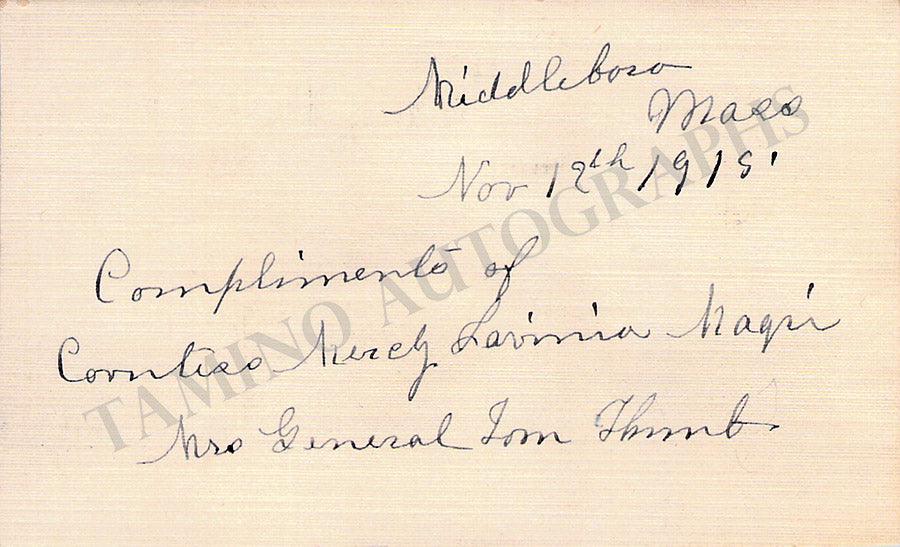 Middleboro
Mass
Nov 12th 1915.
Compliments of
Countess Mercy Lavinia Magri
Mrs General Tom Thumb
TAMINO AUTOGRAPHS